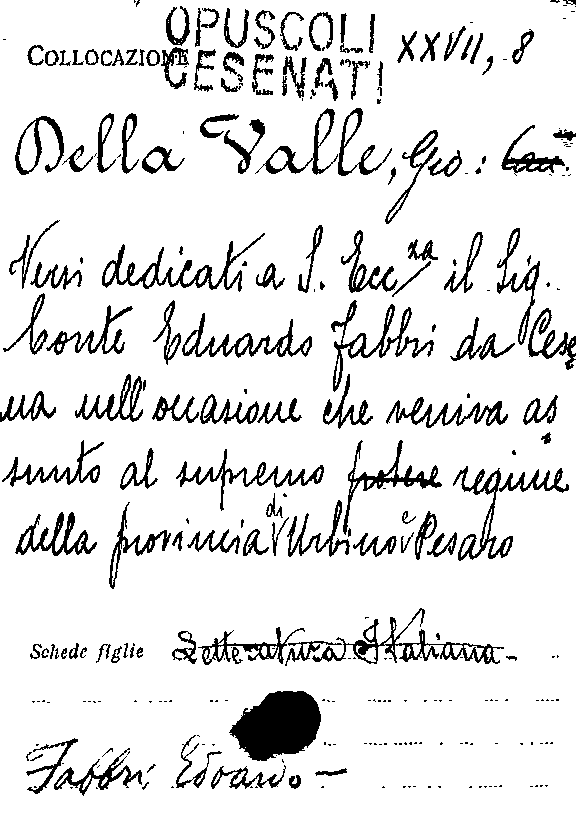 OPUSCOLI
COLLOCAZIONE XXVII, 8
CESENATI
Della Valle, Geo: Can.
Versi dedicati a S. Ecc/za il Sig.
Conte Eduardo Fabbri da Cese
na nell'occasione che veniva as
sunto al supremo potere regime
della provincia di Urbino e Pesaro
Schede figlie Letteratura Italiana -
Fabbri Edoardo -